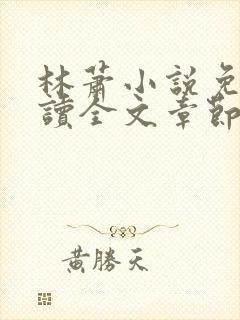 林蕭小說免
讀全文章節
黃勝天